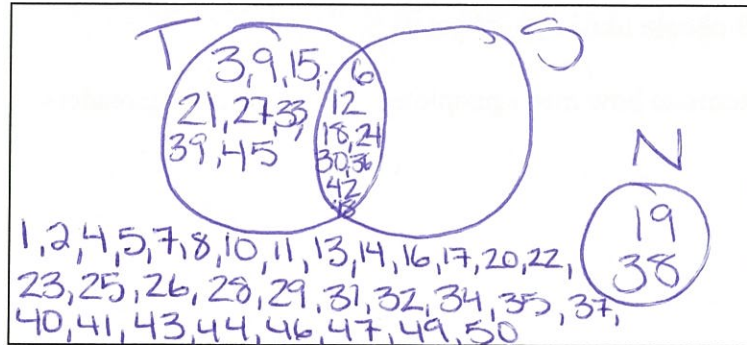 T
S
3, 9, 15,
21, 27, 33,
39, 45
6
12
18, 24
30, 36
42
48
N
19
38
1, 2, 4, 5, 7, 8, 10, 11, 13, 14, 16, 17, 20, 22,
23, 25, 26, 28, 29, 31, 32, 34, 35, 37,
40, 41, 43, 44, 46, 47, 49, 50